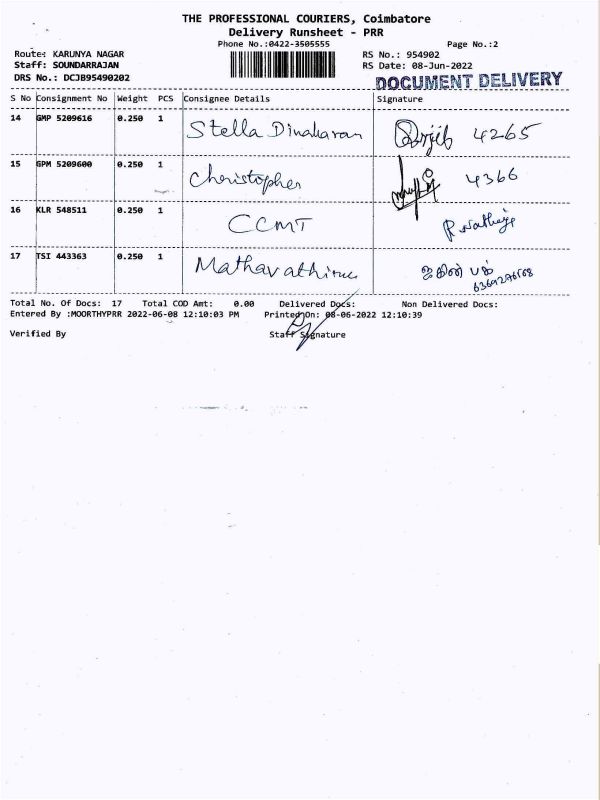 THE PROFESSIONAL COURIERS, Coimbatore
Delivery Runsheet - PRR
Phone No.:0422-3505555 Page No.:2
Route: KARUNYA NAGAR RS No.: 954902
Staff: SOUNDARRAJAN RS Date: 08-Jun-2022
DRS No.: DCJB95490202 DOCUMENT DELIVERY
S No Consignment No Weight PCS Consignee Details Signature
14 GMP 5209616 0.250 1 Stella Dinakaran 4265
15 GPM 5209600 0.250 1 Christopher 4366
16 KLR 548511 0.250 1 CCMT
17 TSI 443363 0.250 1 Mathavathinu
Total No. Of Docs: 17 Total COD Amt: 0.00 Delivered Docs: Non Delivered Docs:
Entered By :MOORTHYPRR 2022-06-08 12:10:03 PM Printed On: 08-06-2022 12:10:39
Verified By Staff Signature